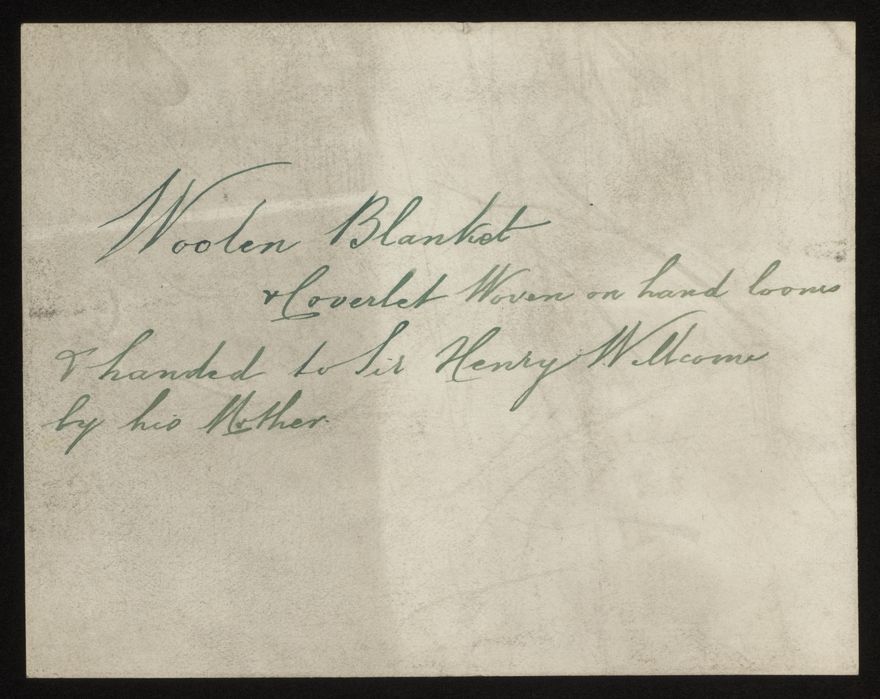 Woolen Blanket
& Coverlet Woven on hand looms
& handed to Sir Henry Wellcome
by his Mother.